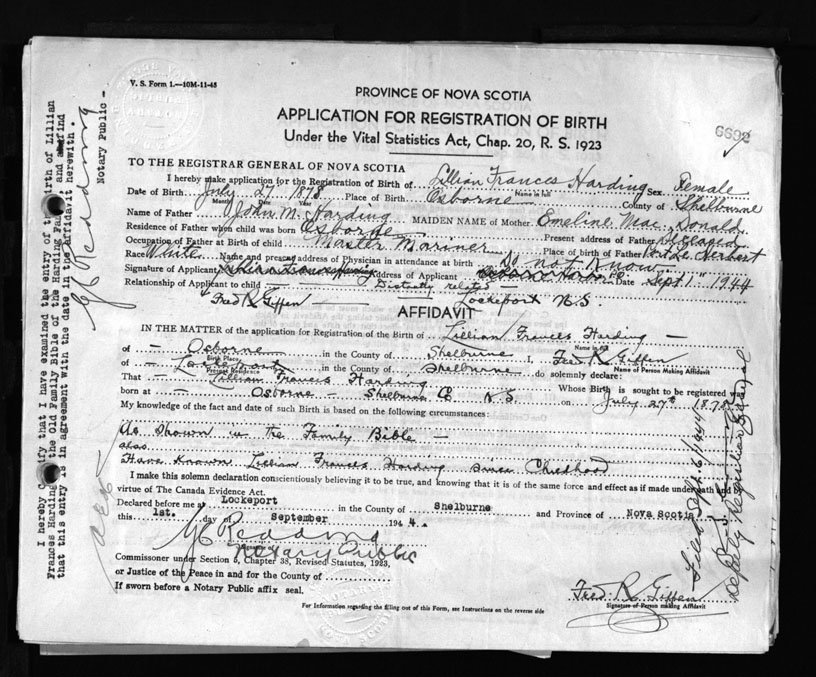 V. S. Form 1.—10M-11-43
PROVINCE OF NOVA SCOTIA
APPLICATION FOR REGISTRATION OF BIRTH
Under the Vital Statistics Act, Chap. 20, R. S. 1923
6692
TO THE REGISTRAR GENERAL OF NOVA SCOTIA
I hereby make application for the Registration of Birth of Lillian Frances Harding Sex Female
Name in full
Date of Birth July 27 1878 Place of Birth Osborne County of Shelburne
Month Day Year
Name of Father John M. Harding MAIDEN NAME of Mother Emeline Mac Donald
Residence of Father when child was born Osborne Present address of Father Deceased
Occupation of Father at Birth of child Master Mariner Place of birth of Father Port Herbert
Race White Name and present address of Physician in attendance at birth Do not Know
Signature of Applicant Address of Applicant Date Sept 1" 1944
Relationship of Applicant to child Distantly related
Fred R Giffen Lockeport N.S.
AFFIDAVIT
IN THE MATTER of the application for Registration of the Birth of Lillian Frances Harding
Name in full
of Osborne in the County of Shelburne I, Fred R Giffen
Birth Place Name of Person Making Affidavit
of in the County of Shelburne do solemnly declare:
Present Residence
That Lillian Frances Harding Whose Birth is sought to be registered was
born at Osborne Shelburne Co N.S. on July 27th 1878
My knowledge of the fact and date of such Birth is based on the following circumstances:
As Shown in the Family Bible
also
Have Known Lillian Frances Harding since Childhood
I make this solemn declaration conscientiously believing it to be true, and knowing that it is of the same force and effect as if made under oath and
virtue of The Canada Evidence Act.
Declared before me at Lockeport in the County of Shelburne and Province of Nova Scotia
this 1st. day of September 1944.
Signature of
Notary Public
Commissioner under Section 6, Chapter 38, Revised Statutes, 1923,
or Justice of the Peace in and for the County of
If sworn before a Notary Public affix seal.
Fred. R. Giffen
Signature of Person making Affidavit
For Information regarding the filling out of this Form, see Instructions on the reverse side
I hereby Certify that I have examined the entry of the birth of Lillian
Frances Harding the Old Family Bible of the Harding and find
that this entry is in agreement with the date in the Affidavit herewith.
Notary Public -
Filed Sept 6/1944
Deputy Registrar General